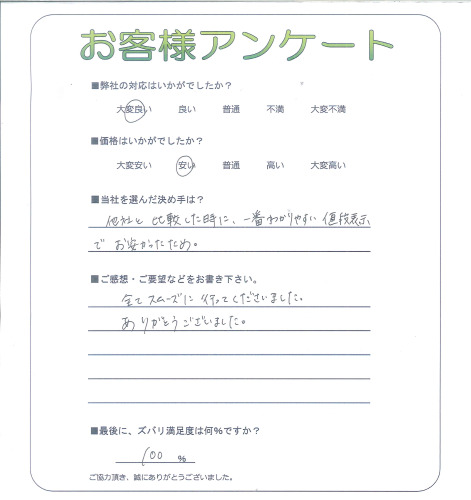 お客様アンケート
■弊社の対応はいかがでしたか？
大変良い 良い 普通 不満 大変不満
■価格はいかがでしたか？
大変安い 安い 普通 高い 大変高い
■当社を選んだ決め手は？
他社と比較した時に、一番わかりやすい価格表示
でお安かったため。
■ご感想・ご要望などをお書き下さい。
全てスムーズに行ってくださいました。
ありがとうございました。
■最後に、ズバリ満足度は何％ですか？
100 ％
ご協力頂き、誠にありがとうございました。